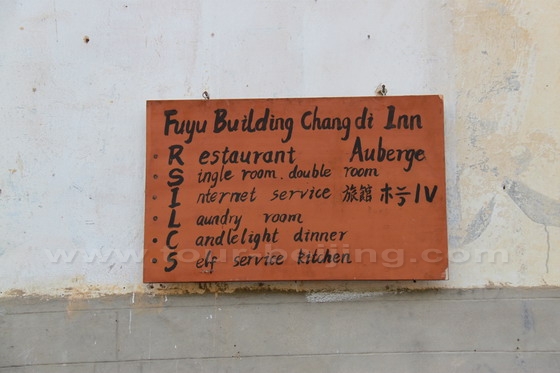 Fuyu Building Changdi Inn
Restaurant Auberge
Single room. double room
Internet service 旅館
Laundry room
Candlelight dinner
Self service kitchen